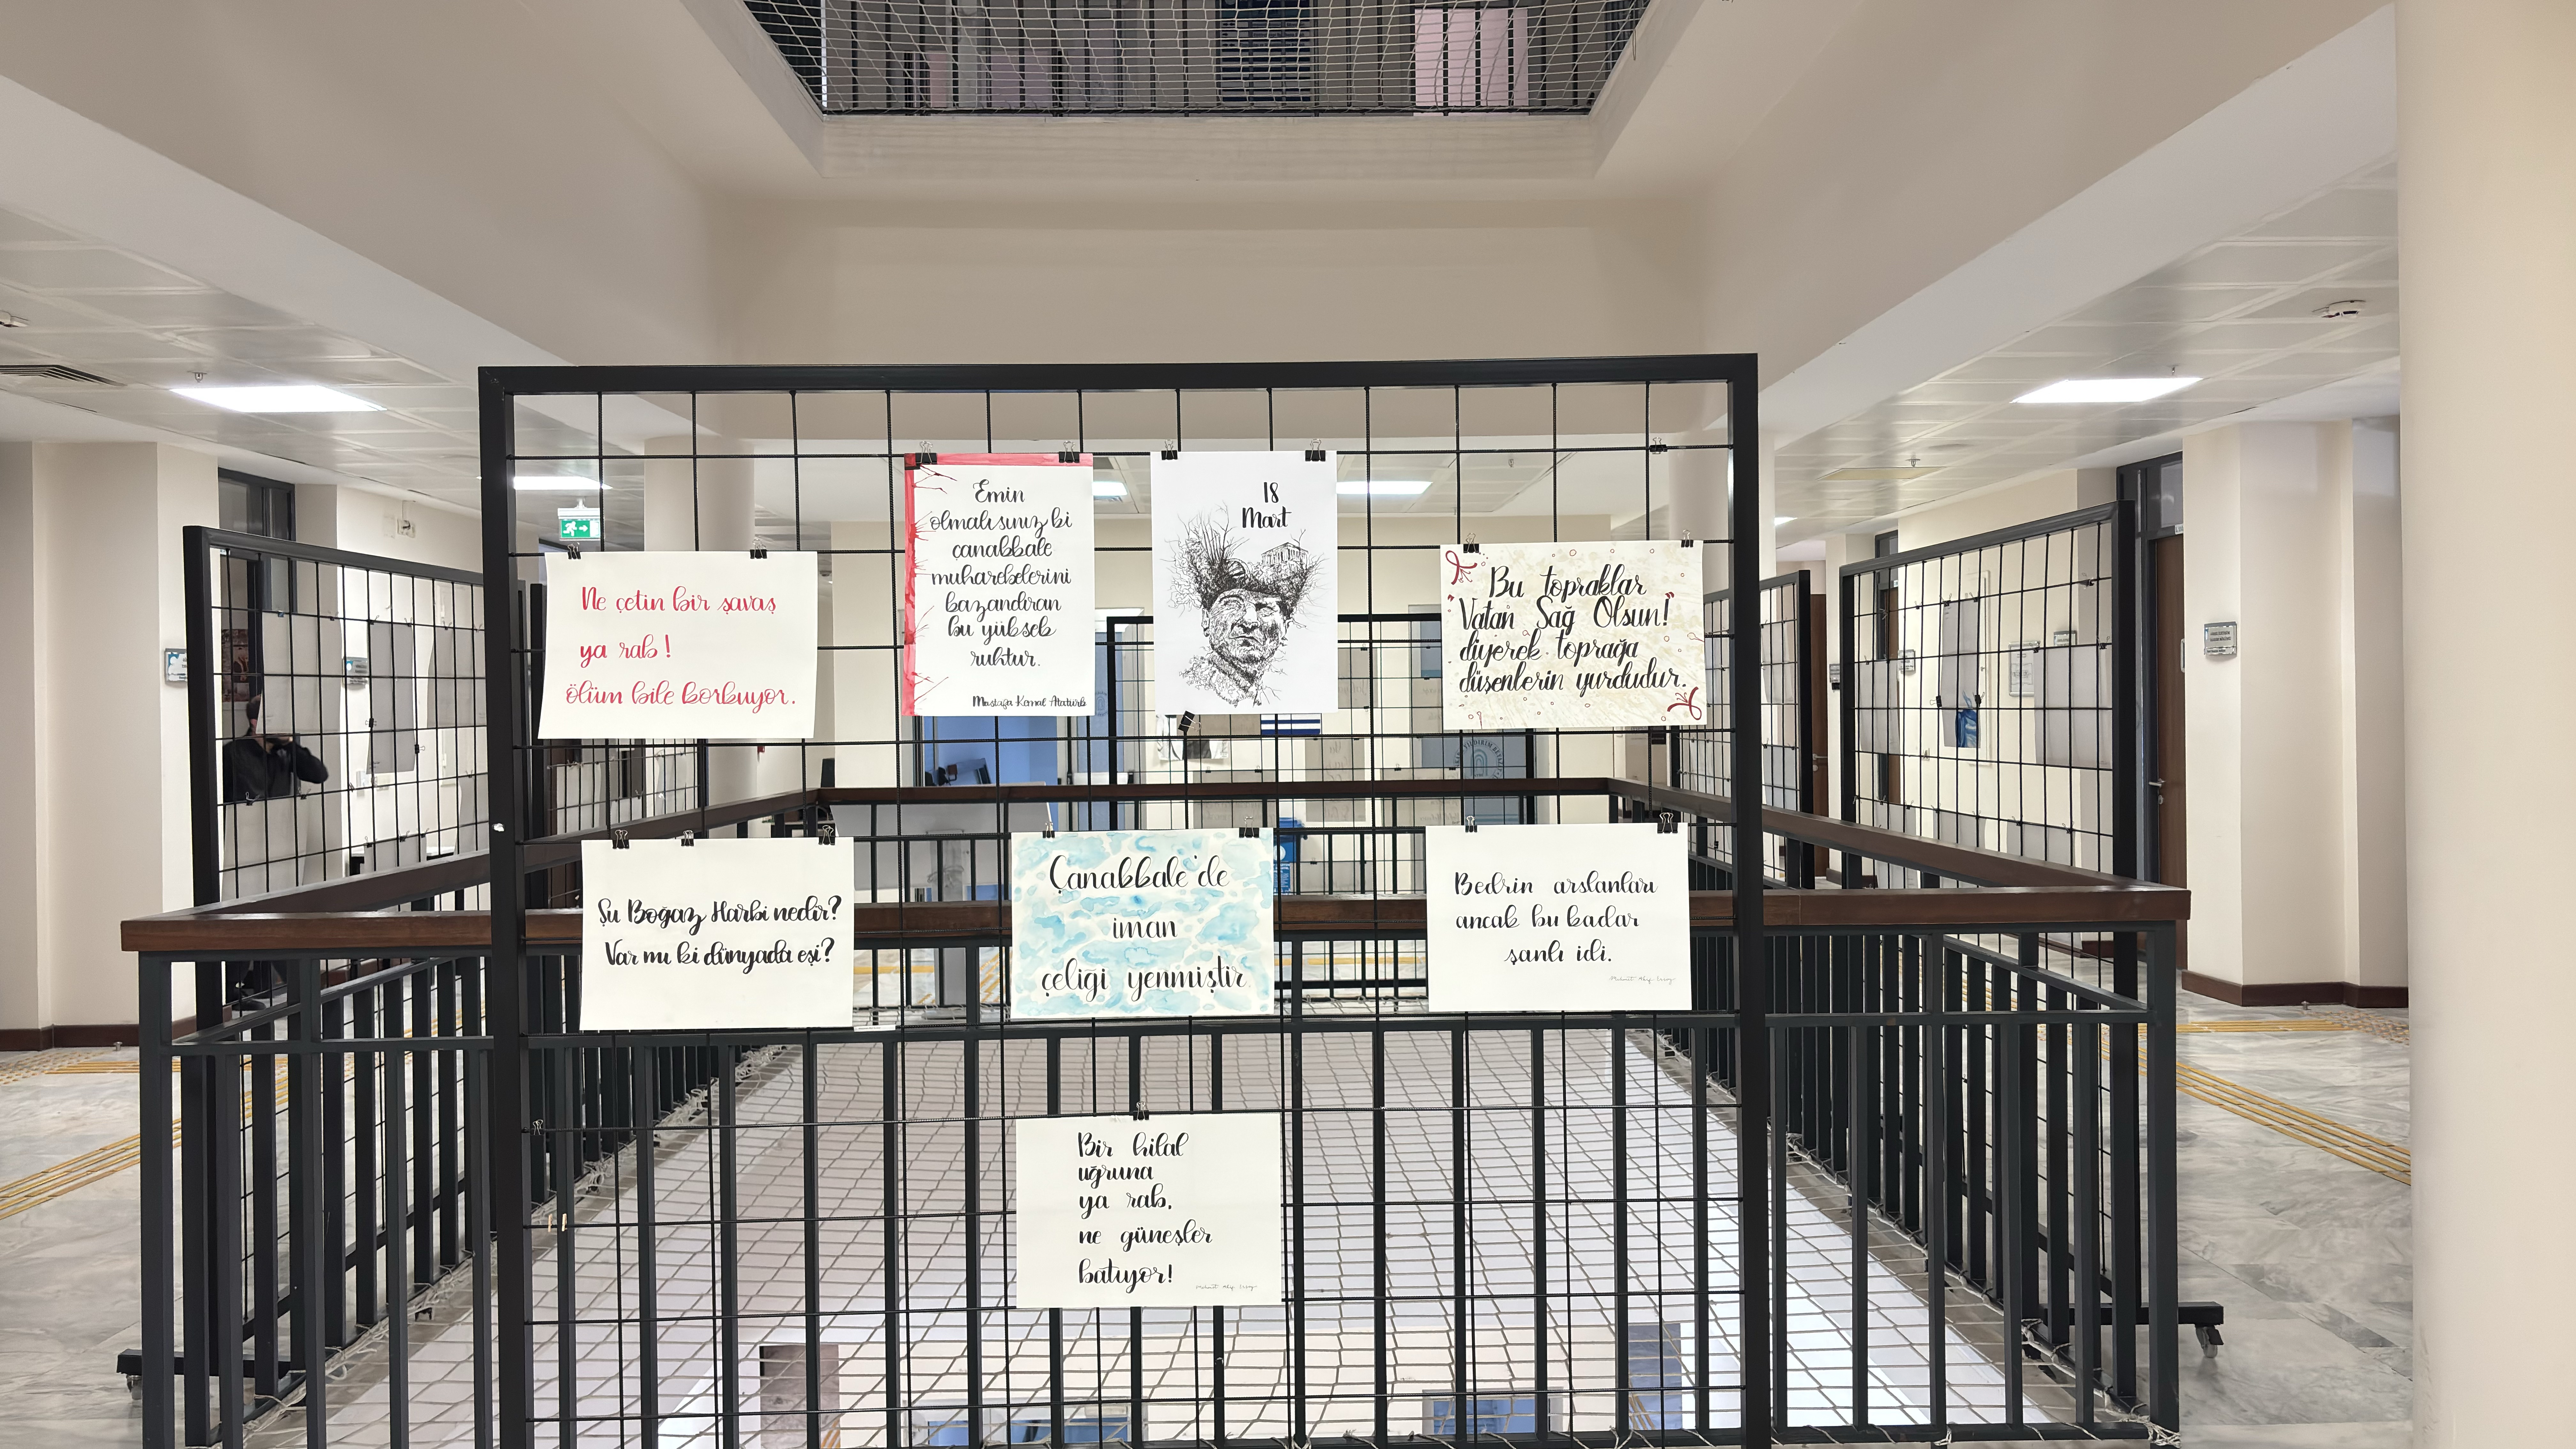 Ne çetin bir savaş
ya rab!
ölüm bile korkuyor.
Emin
olmalısınız ki
çanakkale
muharebelerini
kazandıran
bu yüksek
ruhtur.
Mustafa Kemal Atatürk
18
Mart
Bu topraklar
Vatan Sağ Olsun!
diyerek toprağa
düşenlerin yurdudur.
Şu Boğaz Harbi nedir?
Var mı ki dünyada eşi?
Çanakkale'de
iman
çeliği yenmiştir
Bedrin arslanları
ancak bu kadar
şanlı idi.
Bir hilal
uğruna
ya rab,
ne güneşler
batıyor!